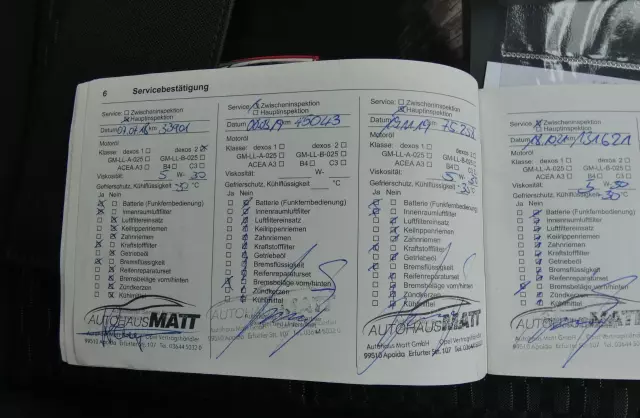 6 Servicebestätigung
Service: Zwischeninspektion
Hauptinspektion
Datum 07.07.18 km 33901
Motoröl
Klasse: dexos 1 dexos 2
GM-LL-A-025 GM-LL-B-025
ACEA A3 B4 C3
Viskosität: 5 W- 30
Gefrierschutz, Kühlflüssigkeit -30 °C
Ja Nein
Batterie (Funkfernbedienung)
Innenraumluftfilter
Luftfiltereinsatz
Keilrippenriemen
Zahnriemen
Kraftstofffilter
Getriebeöl
Bremsflüssigkeit
Reifenreparaturset
Bremsbeläge vorn/hinten
Zündkerzen
Kühlmittel
AUTOHAUS MATT
Opel Vertragshändler
99510 Apolda, Erfurter Str. 107 Tel. 03644 5032 6
Service: Zwischeninspektion
Hauptinspektion
Datum km 45043
Motoröl
Klasse: dexos 1 dexos 2
GM-LL-A-025 GM-LL-B-025
ACEA A3 B4 C3
Viskosität: W-
Gefrierschutz, Kühlflüssigkeit °C
Ja Nein
Batterie (Funkfernbedienung)
Innenraumluftfilter
Luftfiltereinsatz
Keilrippenriemen
Zahnriemen
Kraftstofffilter
Getriebeöl
Bremsflüssigkeit
Reifenreparaturset
Bremsbeläge vorn/hinten
Zündkerzen
Kühlmittel
99510 Apolda Erfurter Str. 107 Tel. 03644 5032 6
Service: Zwischeninspektion
Hauptinspektion
Datum 19.11.19 km 75.252
Motoröl
Klasse: dexos 1 dexos 2
GM-LL-A-025 GM-LL-B-025
ACEA A3 B4 C3
Viskosität: 5 W- 30
Gefrierschutz, Kühlflüssigkeit
Ja Nein
Batterie (Funkfernbedienung)
Innenraumluftfilter
Luftfiltereinsatz
Keilrippenriemen
Zahnriemen
Kraftstofffilter
Getriebeöl
Bremsflüssigkeit
Reifenreparaturset
Bremsbeläge vorn/hinten
Zündkerzen
Kühlmittel
AUTOHAUS MATT
Autohaus Matt GmbH Opel Vertragshändler
99510 Apolda Erfurter Str. 107 Tel. 03644
Service: Zwischeninspektion
Hauptinspektion
Datum km 131621
Motoröl
Klasse: dexos 1 dexos 2
GM-LL-A-025 GM-LL-B-025
ACEA A3 B4 C3
Viskosität: 5 W- 30
Gefrierschutz, Kühlflüssigkeit
Ja Nein
Batterie (Funkfernbedienung)
Innenraumluftfilter
Luftfiltereinsatz
Keilrippenriemen
Zahnriemen
Kraftstofffilter
Getriebeöl
Bremsflüssigkeit
Reifenreparaturset
Bremsbeläge vorn/hinten
Zündkerzen
Kühlmittel
AUTOHAUS
Autohaus Matt GmbH Opel Vertragshändler
99510 Apolda